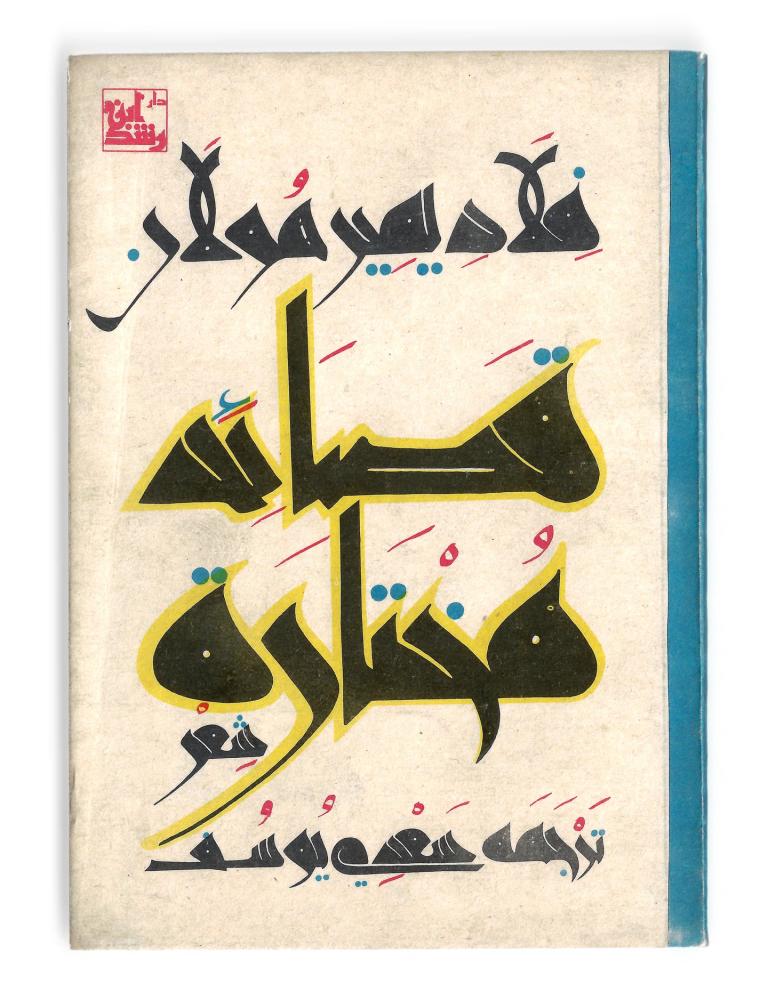 دار
ابن
رشد
فِلَادِيمِير هُولَان
قَصَائِد
مُخْتَارَة
شِعْر
تَرْجَمَة سَعْدِي يُوسُف